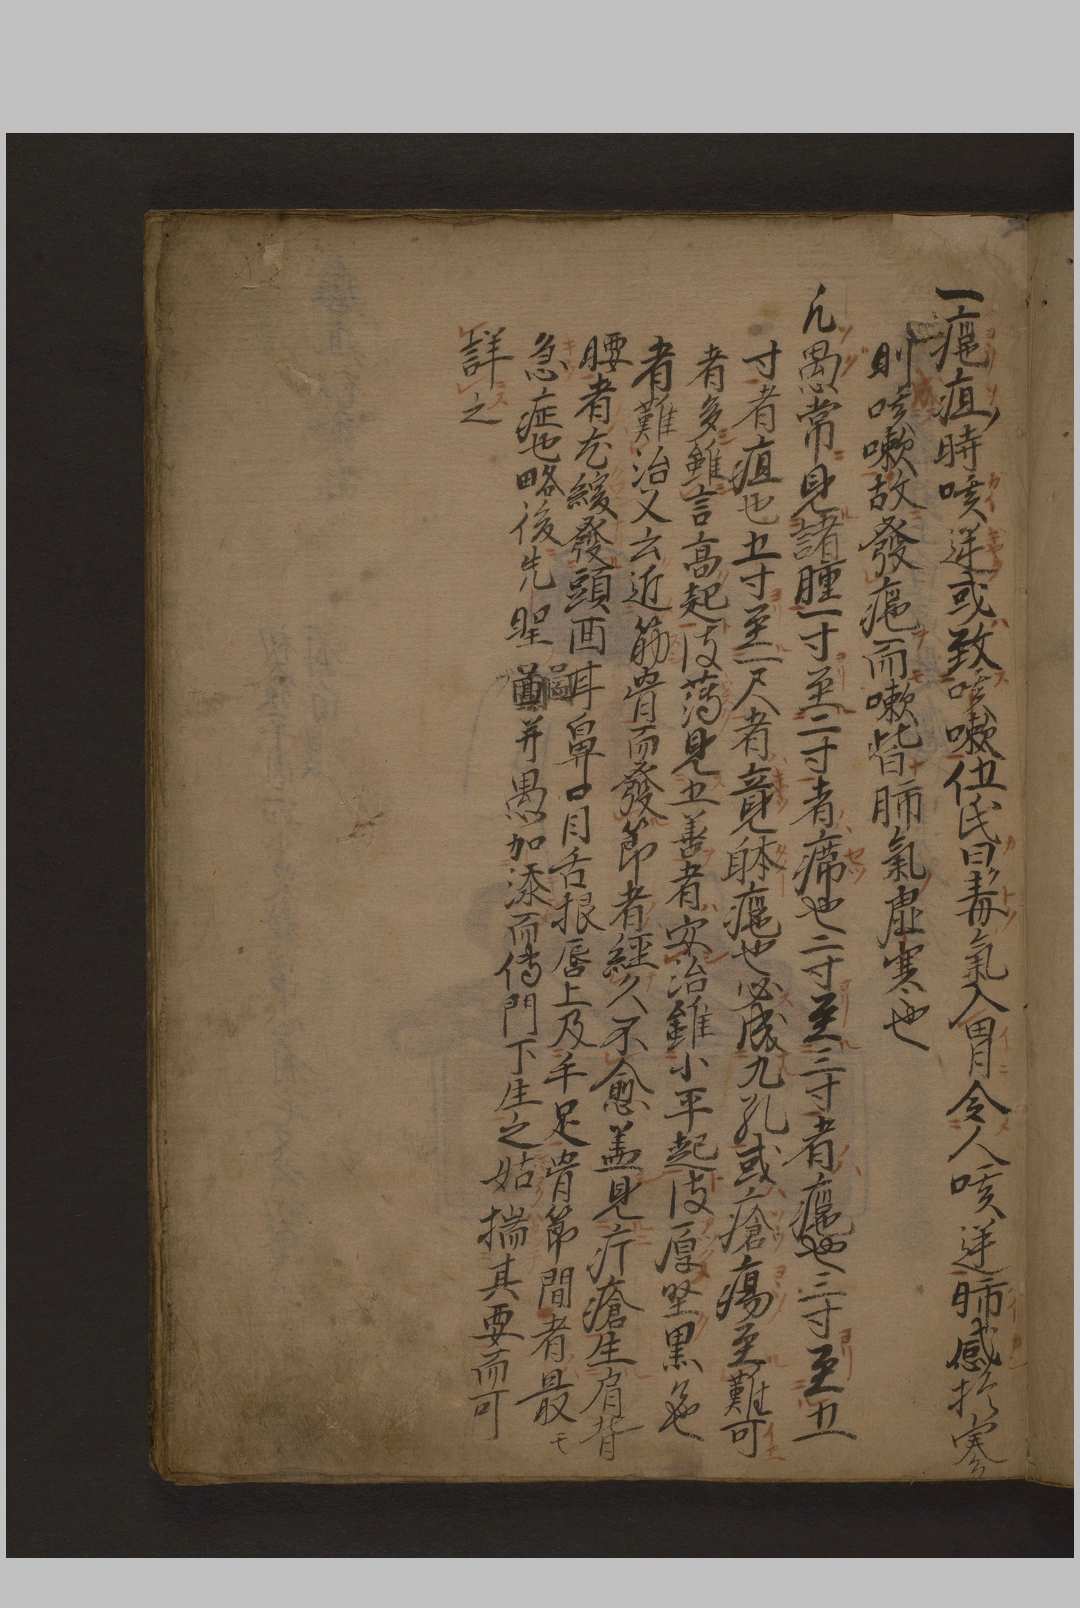 一癰疽時咳逆或致咳嗽伍氏曰毒氣入胃令人咳逆肺感於寒
則咳嗽故發癰而嗽皆肺氣虚寒也
凢愚常見諸腫一寸至二寸者癤也二寸至三寸者癰也三寸至五
寸者疽也五寸至一尺者竟躰癰也必成九孔或瘡瘍至難可
者多雖言高起皮薄見五善者安治雖小平起皮厚堅黒色
者難治又云近筋骨而發節者經久不愈盖見疔瘡生肩背
腰者尤緩發頭面耳鼻口目舌根唇上及手足骨節間者最モ
急症也略後先聖 并愚加添而傳門下生之姑揣其要而可
詳之